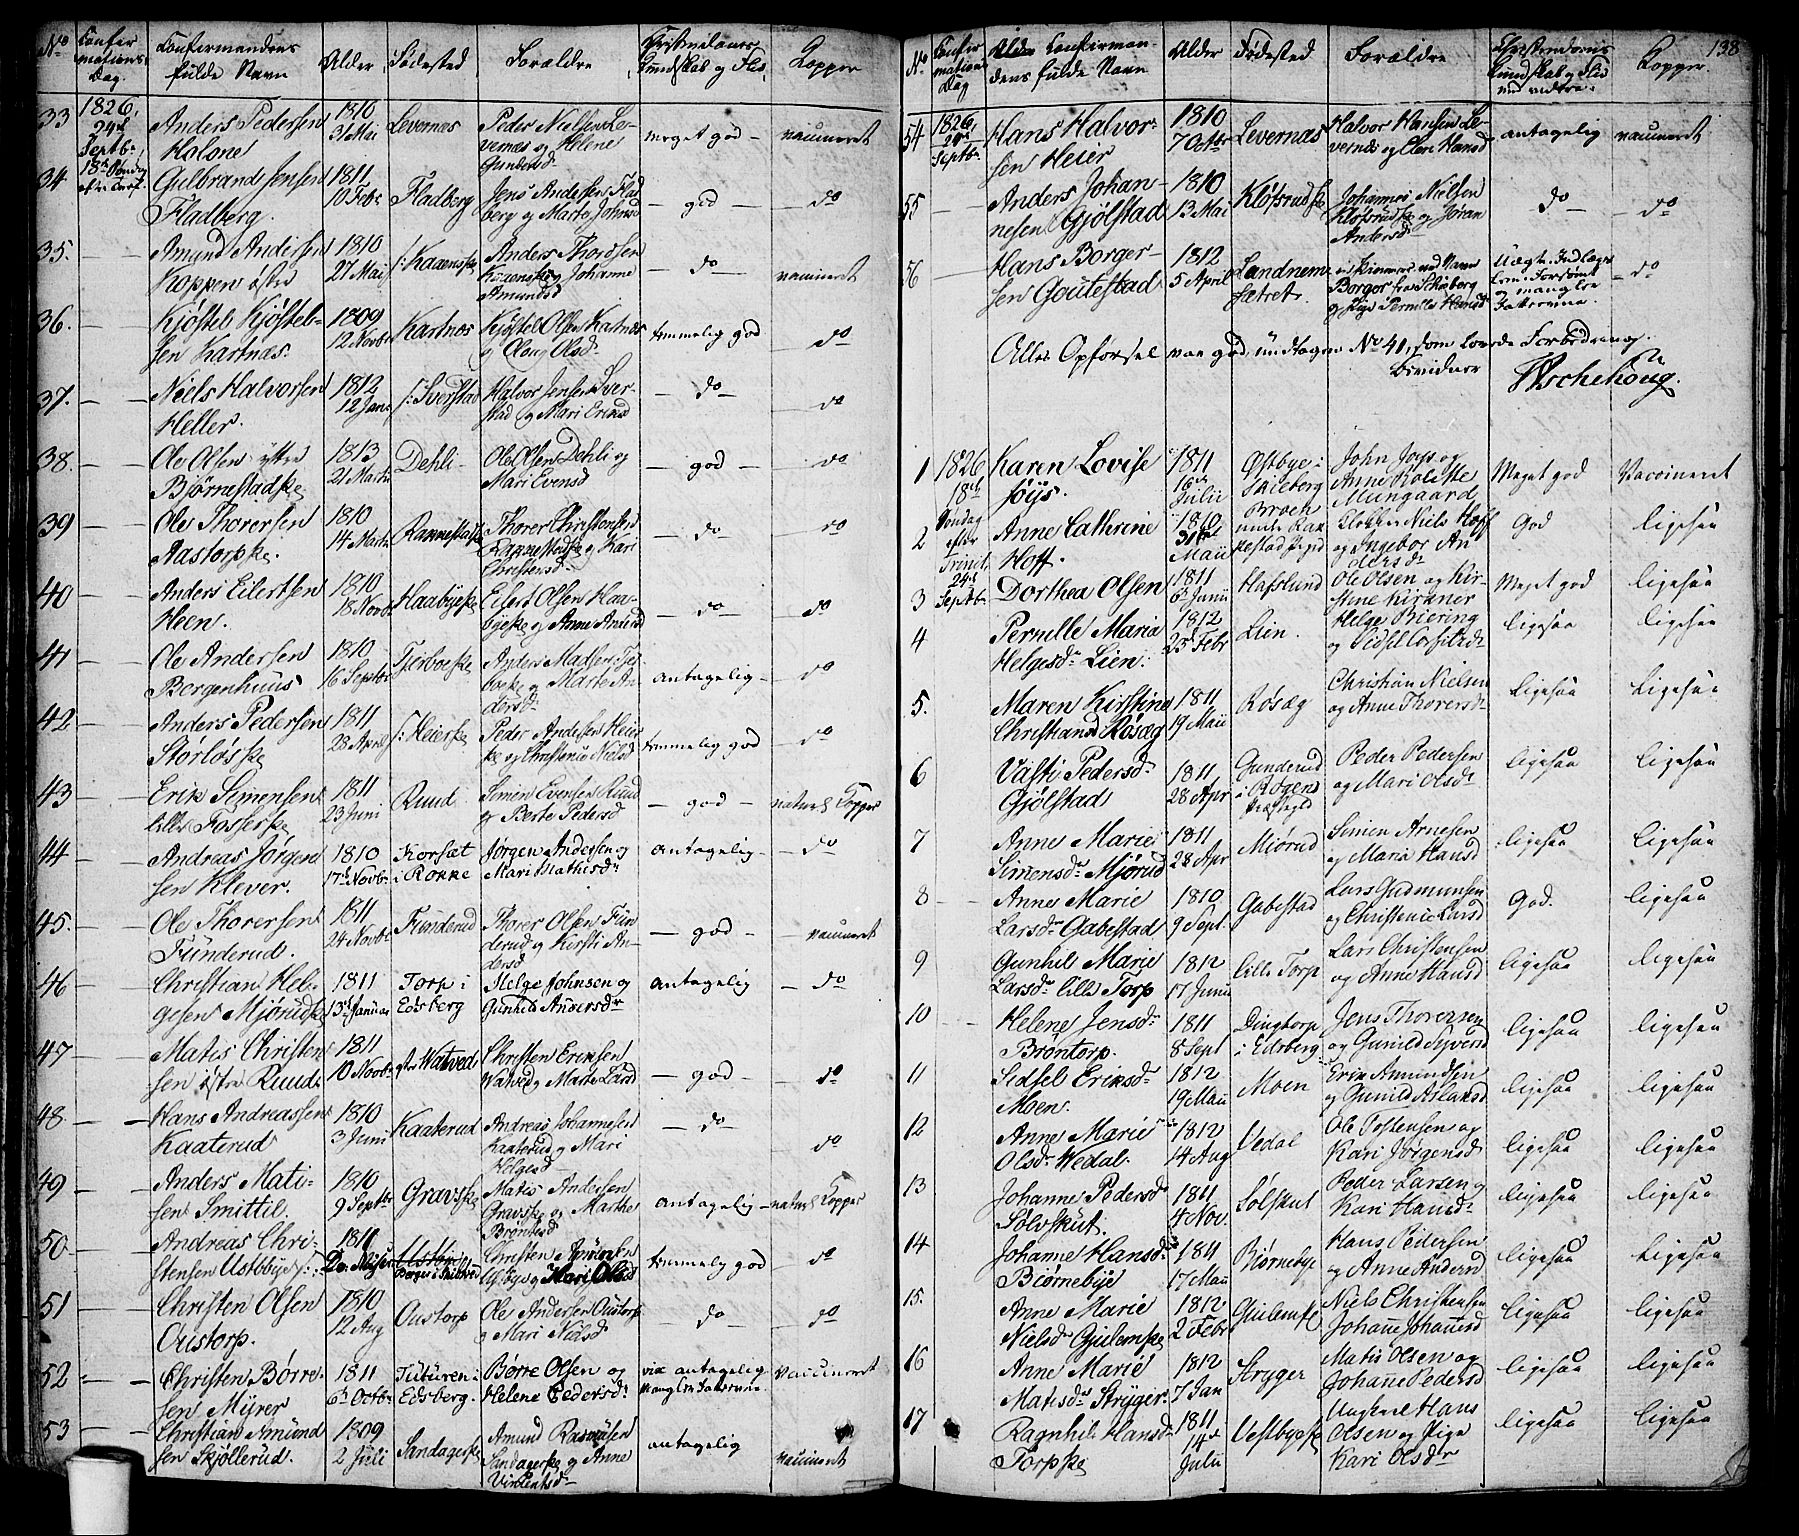 No
Confirmations Dag
Confirmandens fulde Navn
Alder
Fødested
Forældre
Christendoms Kundskab og Flid
Kopper
33
1826, 24d Septbr, 18de Søndag efter Trinit.
Anders Pedersen
Halone
1810
31 Mai
Levernæs
Peder Nielsen Levernæs og Helene Gundersd
meget god
vaccineret
34
Gulbrand Jensen
Fladberg.
1811
10 Febr
Fladberg
Jens Andersen Fladberg og Marte Johnsd
god
do
35.
Amund Andersen
Koppen østre
1810
27 Mai
Anders Thordsen
og Johanne
Amundsd
do
vaccineret
36.
Kjøstel Kjøstelsen Kartnæs.
1809
12 Novbr
Kartnæs
Kjøstel Olsen Kartnæs
og Olsd
temmelig god
do
37.
Niels Halvorsen
Heller.
1812
12 Janr
Sverstad
Halvor Jensen Sverstad og Mari Eriksd
do
do
38.
Ole Olsen yttre
Bjørnestadske
1813
21 Martz
Dehli
Ole Olsen Dehli og
Mari Evensd
god
do
39
Ole Thorersen
Aastorpske.
1810
14 Martz
Rakkestadske
Thorer Christensen
Rakkestadske og Kari
Christensd
do
do
40
Anders Eilertsen
Heen.
1810
18 Novb
Haabyeske
Eilert Olsen Haabyeske og Anne Andersd
do
do
41
Ole Andersen
Borgenhuus
1810
16 Septbr
Tjerboeske
Anders Madsen Tjerboeske og Marte Andersd
antagelig
do
42
Anders Pedersen
Storløske
1811
28 April
Heierske
Peder Andersen Heierske og Christense Nielsd
temmelig god
do
43
Erik Simensen
lille Fosserske
1811
23 Juni
Ruud
Simen Evensen Ruud
og Berte Pedersd
god
naturl Kopper
44
Andreas Jørgensen Klever.
1810
17 Novbr
Korsæt
i Rokke
Jørgen Andersen og
Mari Mathisdr
antagelig
do
45.
Ole Thorersen
Funderud.
1811
24 Novbr
Funderud
Thorer Olsen Funderud og Kirsti Andersd
god
vaccineret
46
Christian Helgesen Mjørudske
1811
13 Januar
Torp i
Edsberg
Helge Johnsen og
Gunhild Andersdr
antagelig
do
47
Matis Christensen østre Ruud
1811
10 Novbr
Watved
Christen Eriksen
Watved og Marte Larsd
god
do
48.
Hans Andreassen
Kaaterud
1810
3 Juni
Kaaterud
Andreas Johannesen
Kaaterud og Mari
Helgesd
do
do
49
Anders Matisen Smittil.
1810
9 Septbr
Gravske
Matis Andersen
Gravske og Marthe
Brøntesd
antagelig
naturl Kopper
50
Andreas Christensen Ustbbye
1811
Christen
og Kari Olsd
temmelig god
do
51
Christen Olsen
Oustorp.
1810
12 Aug
Oustorp
Ole Andersen Oustorp
og Mari Nielsd
do
do
52
Christen Børresen Myrer
1811
6 Octbr
Tuturen i
Edsberg.
Børre Olsen og
Helene Pedersdr
antagelig
vaccineret
53
Christian Amundsen Skjøllerud.
1809
2 Juli
Sandagerske
Amund Rasmusen
Sandagerske og Anne
antagelig
vaccineret
138
No
Confirmations Dag
Confirmandens fulde Navn
Alder
Fødested
Forældre
Christendoms Kundskab og Flid
Kopper.
54
1826
24d Septbr
Hans Halvorsen Heier
1810
7 Octbr
Levernæs
Halvor Hansen Levernæs og Eleri Hansd
antagelig
vaccineret
55
Anders Johannesen Gjølstad
1810
13 Mai
Kløfsrudske
Johannes Nielsen
Kløfsrudske og Jøran
Andersd
do
do
56
Hans Borgersen Goulestad
1812
5 April
Landnemsætret.
Borger fra Skiberg
og Pige Pernille Hansd
do
Alles Opførsel var god, undtagen No 41, som lovede Forbedring.
bevidner
Aschehoug.
1
1826
18de Søndag efter Trinit. 24d Septbr
Karen Lovise
Joys.
1811
16 Julii
Østbye i
Skieberg
John Joys og
Anne Kolstke
Mungaard
Meget god
Vaccineret
2
Anne Cathrine
Hoff.
1810
31te Maii
Broen
under Rakkestad Prgd
Klokker Niels Hoff
og Ingebor Andersdr
God
ligesaa
3
Dorthea Olsen
1811
6 Junii
Hafslund
Ole Olsen og Kirstine Kirkner
Meget god
ligesaa
4
Pernille Maria
Helgesdr Lien.
1812
25 Febr
Lien.
Helge Biering
og Sidsel
ligesaa
ligesaa
5.
Maren Kirstine
Christiansd Rósæg
1811
19 Maii
Rósæg
Christian Nielsen
og Anne Thorersdr
ligesaa
ligesaa
6
Vasti Pedersdr
Gjølstad
1811
28 Apr
Gunderud
i Rygens
Præstegd
Peder Pedersen
og Mari Olsdr
ligesaa
ligesaa
7
Anne Marie
Simensdr Mjørud
1811
28 Apr
Miørud
Simen Arnesen
og Maria Hansd
ligesaa
ligesaa
8
Anne Marie
Larsdr Gabestad
1810
9 Sept
Gabestad
Lars Gudmunsen
og Christense Larsd
God.
ligesaa
9
Gunhil Marie
Larsdr lille Torp
1812
17 Junii
lille Torp
Lars Christensen
og Anne Hansd
ligesaa
ligesaa
10
Helene Jensdr
Brøntorp.
1811
8 Sept
Dingtorp
i Edsberg
Jens Thorersen
og Gunild Syversd
ligesaa
ligesaa
11
Sidsel Eriksdr
Moen.
1812
19 Maii
Moen
Erik Amundsen
og Gunild Aslaksd
ligesaa
ligesaa
12
Anne Marie
Olsdr Wedal.
1812
14 Aug
Vedal
Ole Tostensen og
Kari Jørgensd
ligesaa
ligesaa
13
Johanne Pedersdr
Sølvskut.
1811
4 Nov.
Sølfskut
Peder Larsen og
Kari Hansdr
ligesaa
ligesaa
14
Johanne Hansdr
Biørnebye
1811
17 Maii
Biørnebye
Hans Pedersen
og Anne Andersd
ligesaa
ligesaa
15.
Anne Marie
Nielsdr Gjulemske
1812
2 Febr
Gjulemske
Niels Christensen
Johanne Johannesd
ligesaa
ligesaa
16
Anne Marie
Matisdr Stryger.
1812
7 Jan
Stryger
Matis Olsen og
Johanne Pedersd
ligesaa
ligesaa
17
Ragnhil Hansdr
Torpske
1811
14d Julii
Vestbyeske
Ungkarl Hans
Olsen og Pige
Kari Olsdr
ligesaa
ligesaa